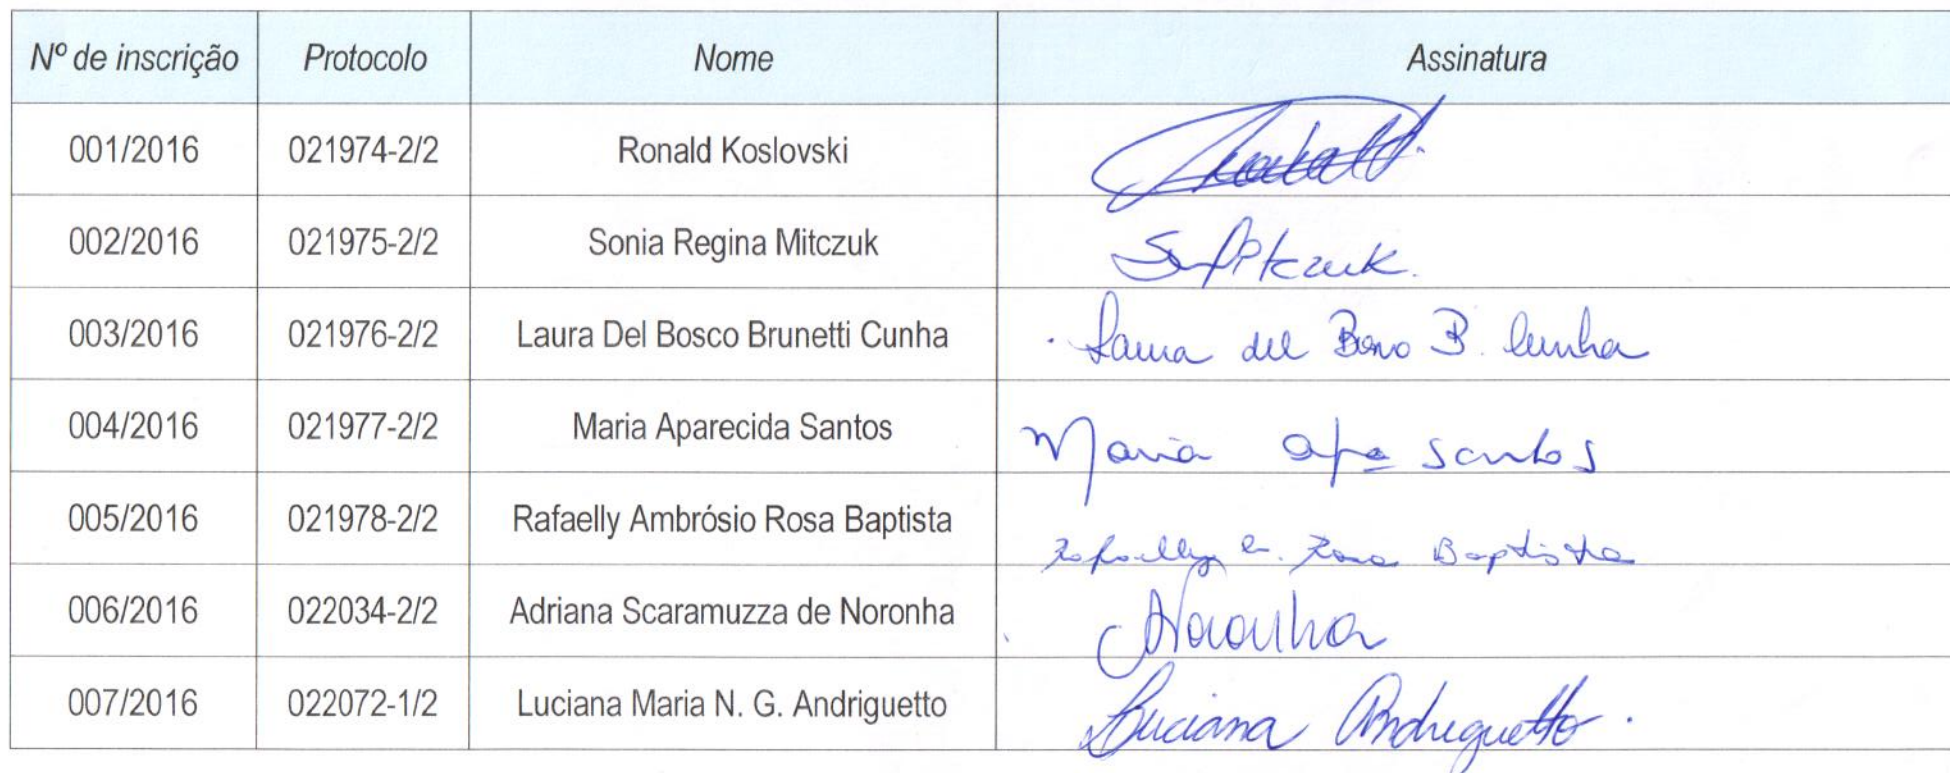 Nº de inscrição Protocolo Nome Assinatura
001/2016 021974-2/2 Ronald Koslovski
002/2016 021975-2/2 Sonia Regina Mitczuk
003/2016 021976-2/2 Laura Del Bosco Brunetti Cunha Laura del Bosco B. Cunha
004/2016 021977-2/2 Maria Aparecida Santos Maria Apª Santos
005/2016 021978-2/2 Rafaelly Ambrósio Rosa Baptista Rafaelly A. Rosa Baptista
006/2016 022034-2/2 Adriana Scaramuzza de Noronha ANoronha
007/2016 022072-1/2 Luciana Maria N. G. Andriguetto Luciana Andriguetto.